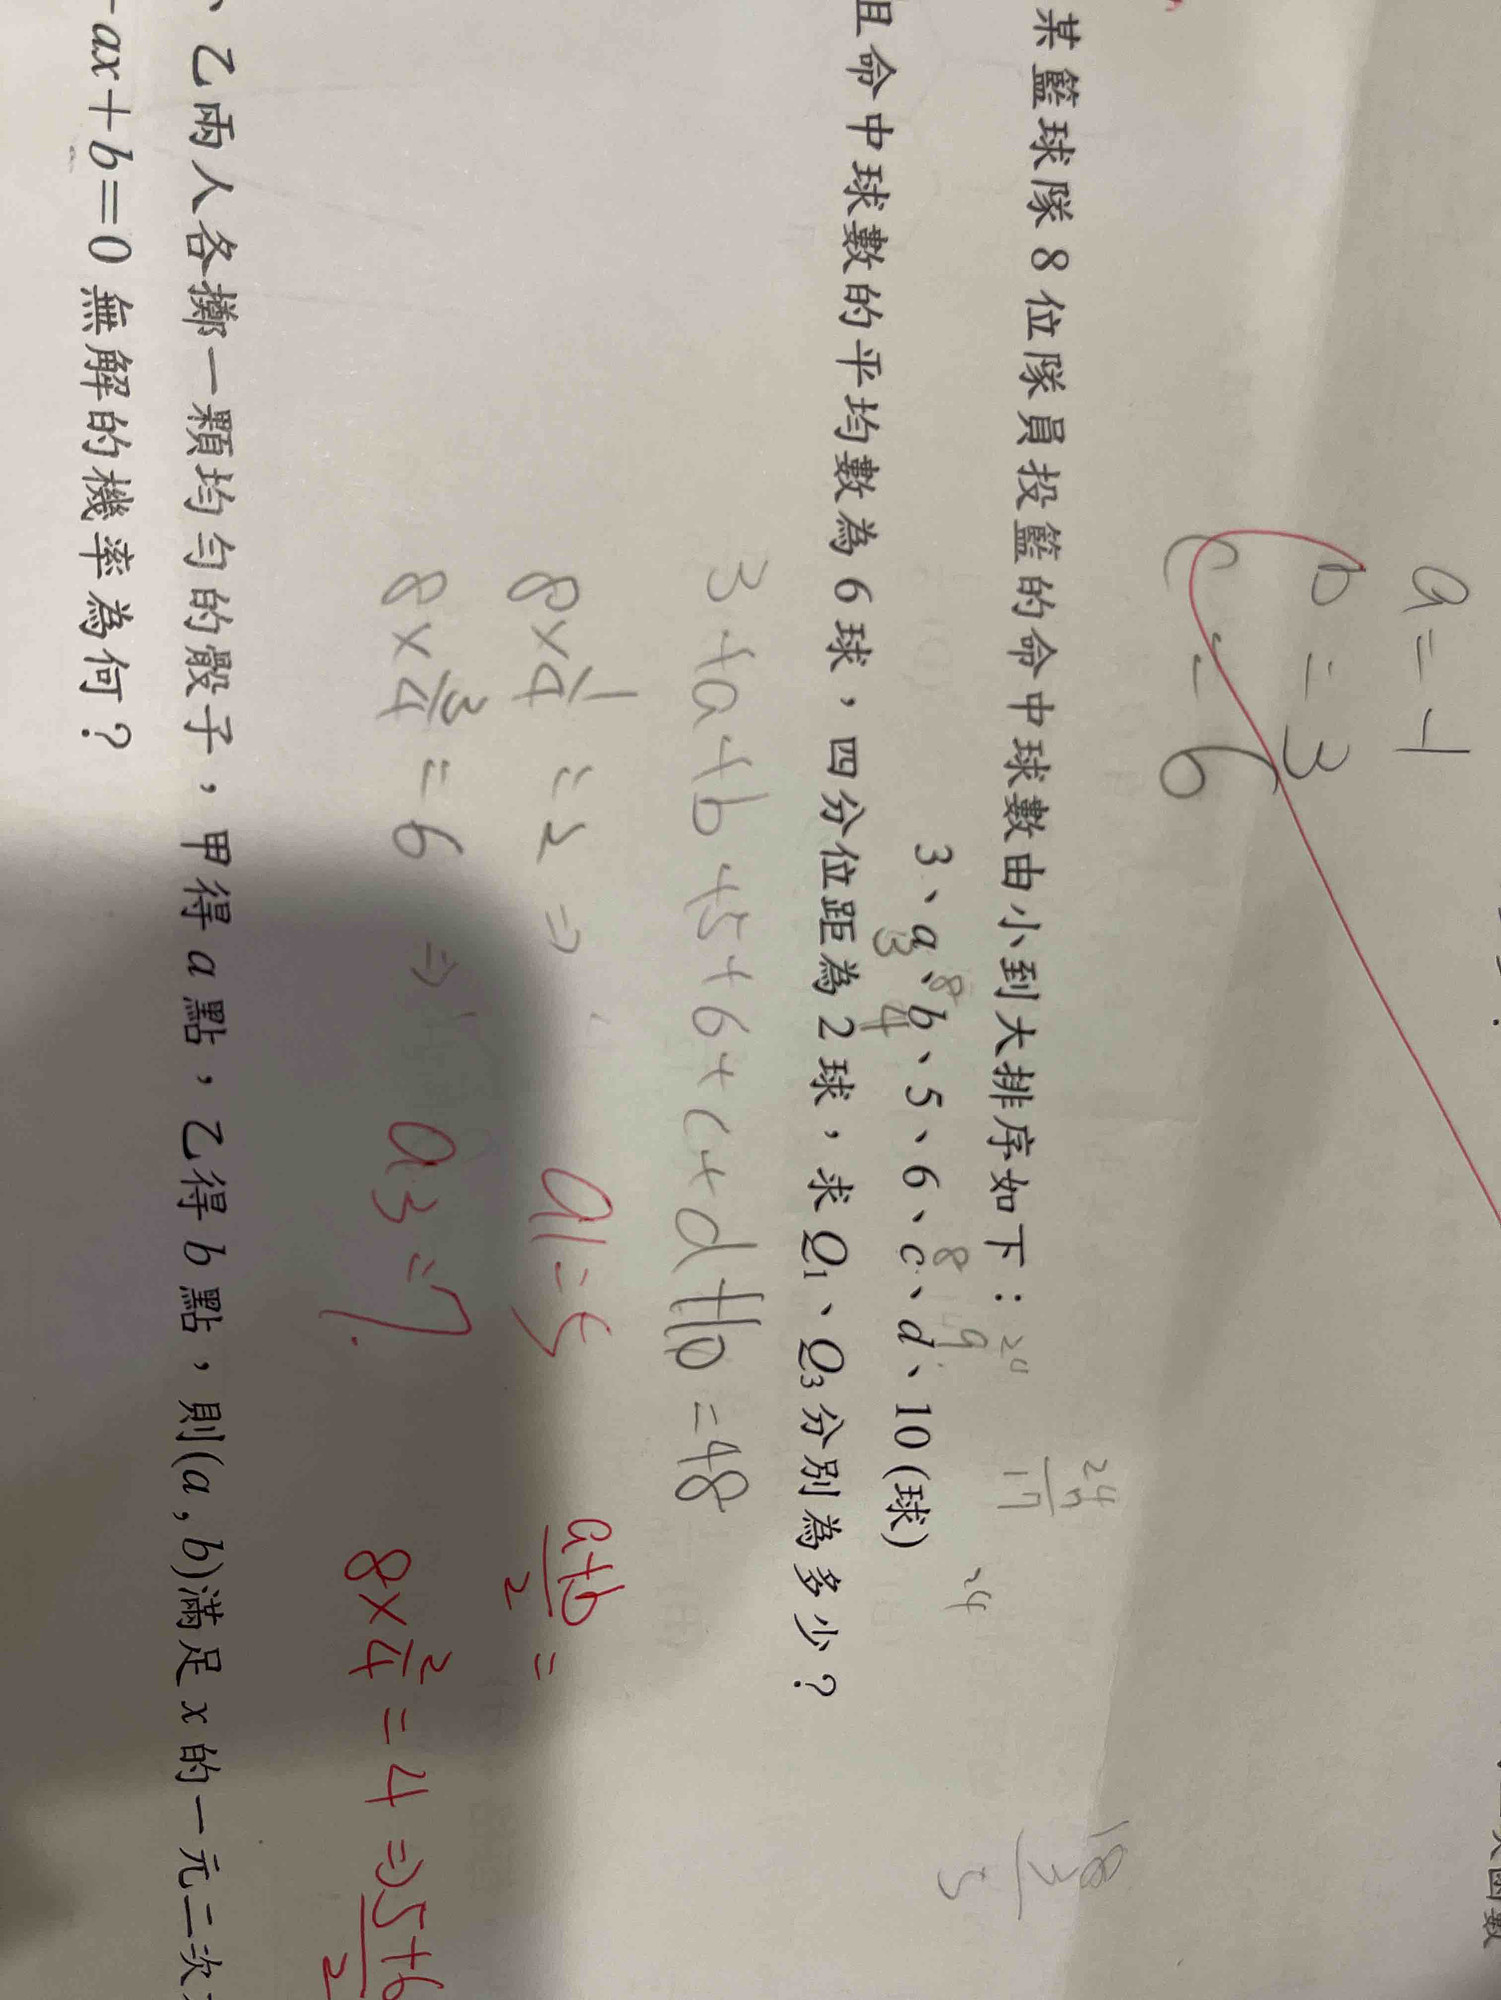 a=-1
b=3
c=6
某籃球隊8位隊員投籃的命中球數由小到大排序如下：
20
24
7
17
24
18
3
8
8
9
3、a、b、5、6、c、d、10(球)
3
4
且命中球數的平均數為6球，四分位距為2球，求Q1、Q3分別為多少？
3+a+b+5+6+c+d+10=48
8×1/4=2⇒ Q1=5 (a+b)/2=
8×3/4=6⇒ Q3=7.
8×2/4=4⇒(5+6)/2
、乙兩人各擲一顆均勻的骰子，甲得a點，乙得b點，則(a,b)滿足x的一元二次
-ax+b=0無解的機率為何？